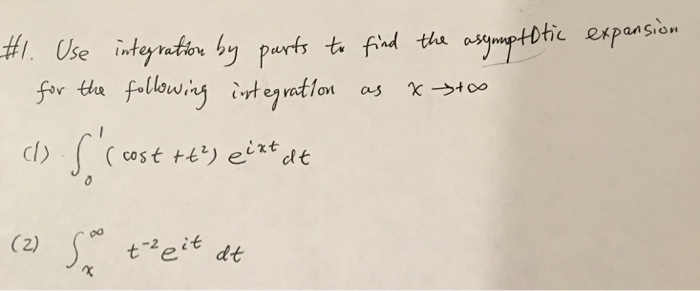 #1. Use integration by parts to find the asymptotic expansion
for the following integration as x →+∞
(1) ∫₀¹ (cost + t²) e^{ixt} dt
(2) ∫ₓ^∞ t⁻² e^{it} dt